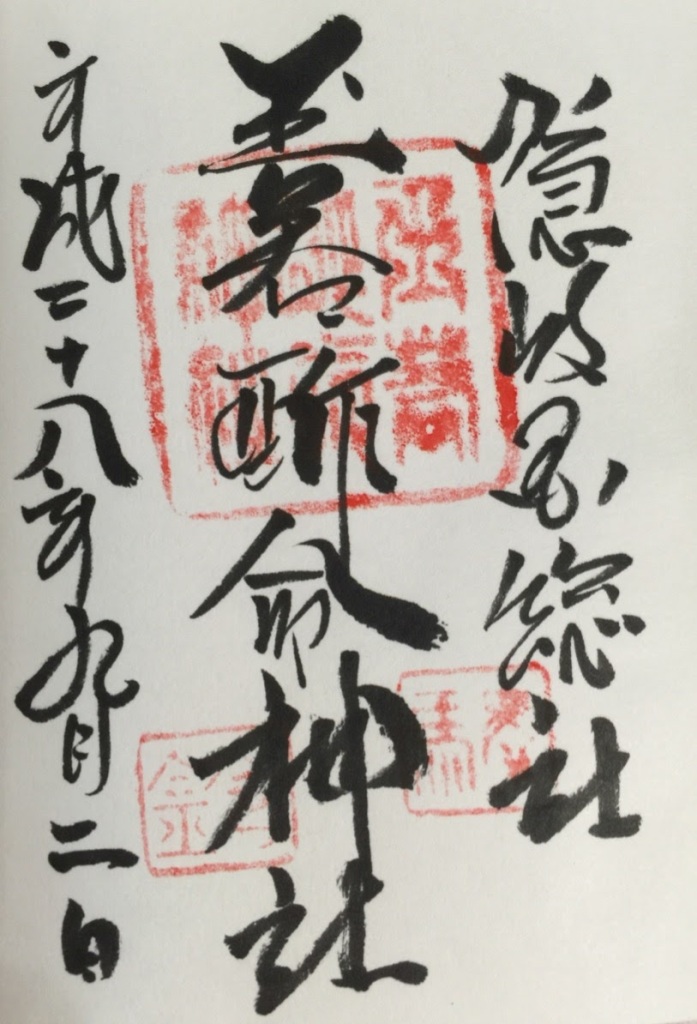 隠岐国総社
玉若酢命神社
平成二十八年九月二日